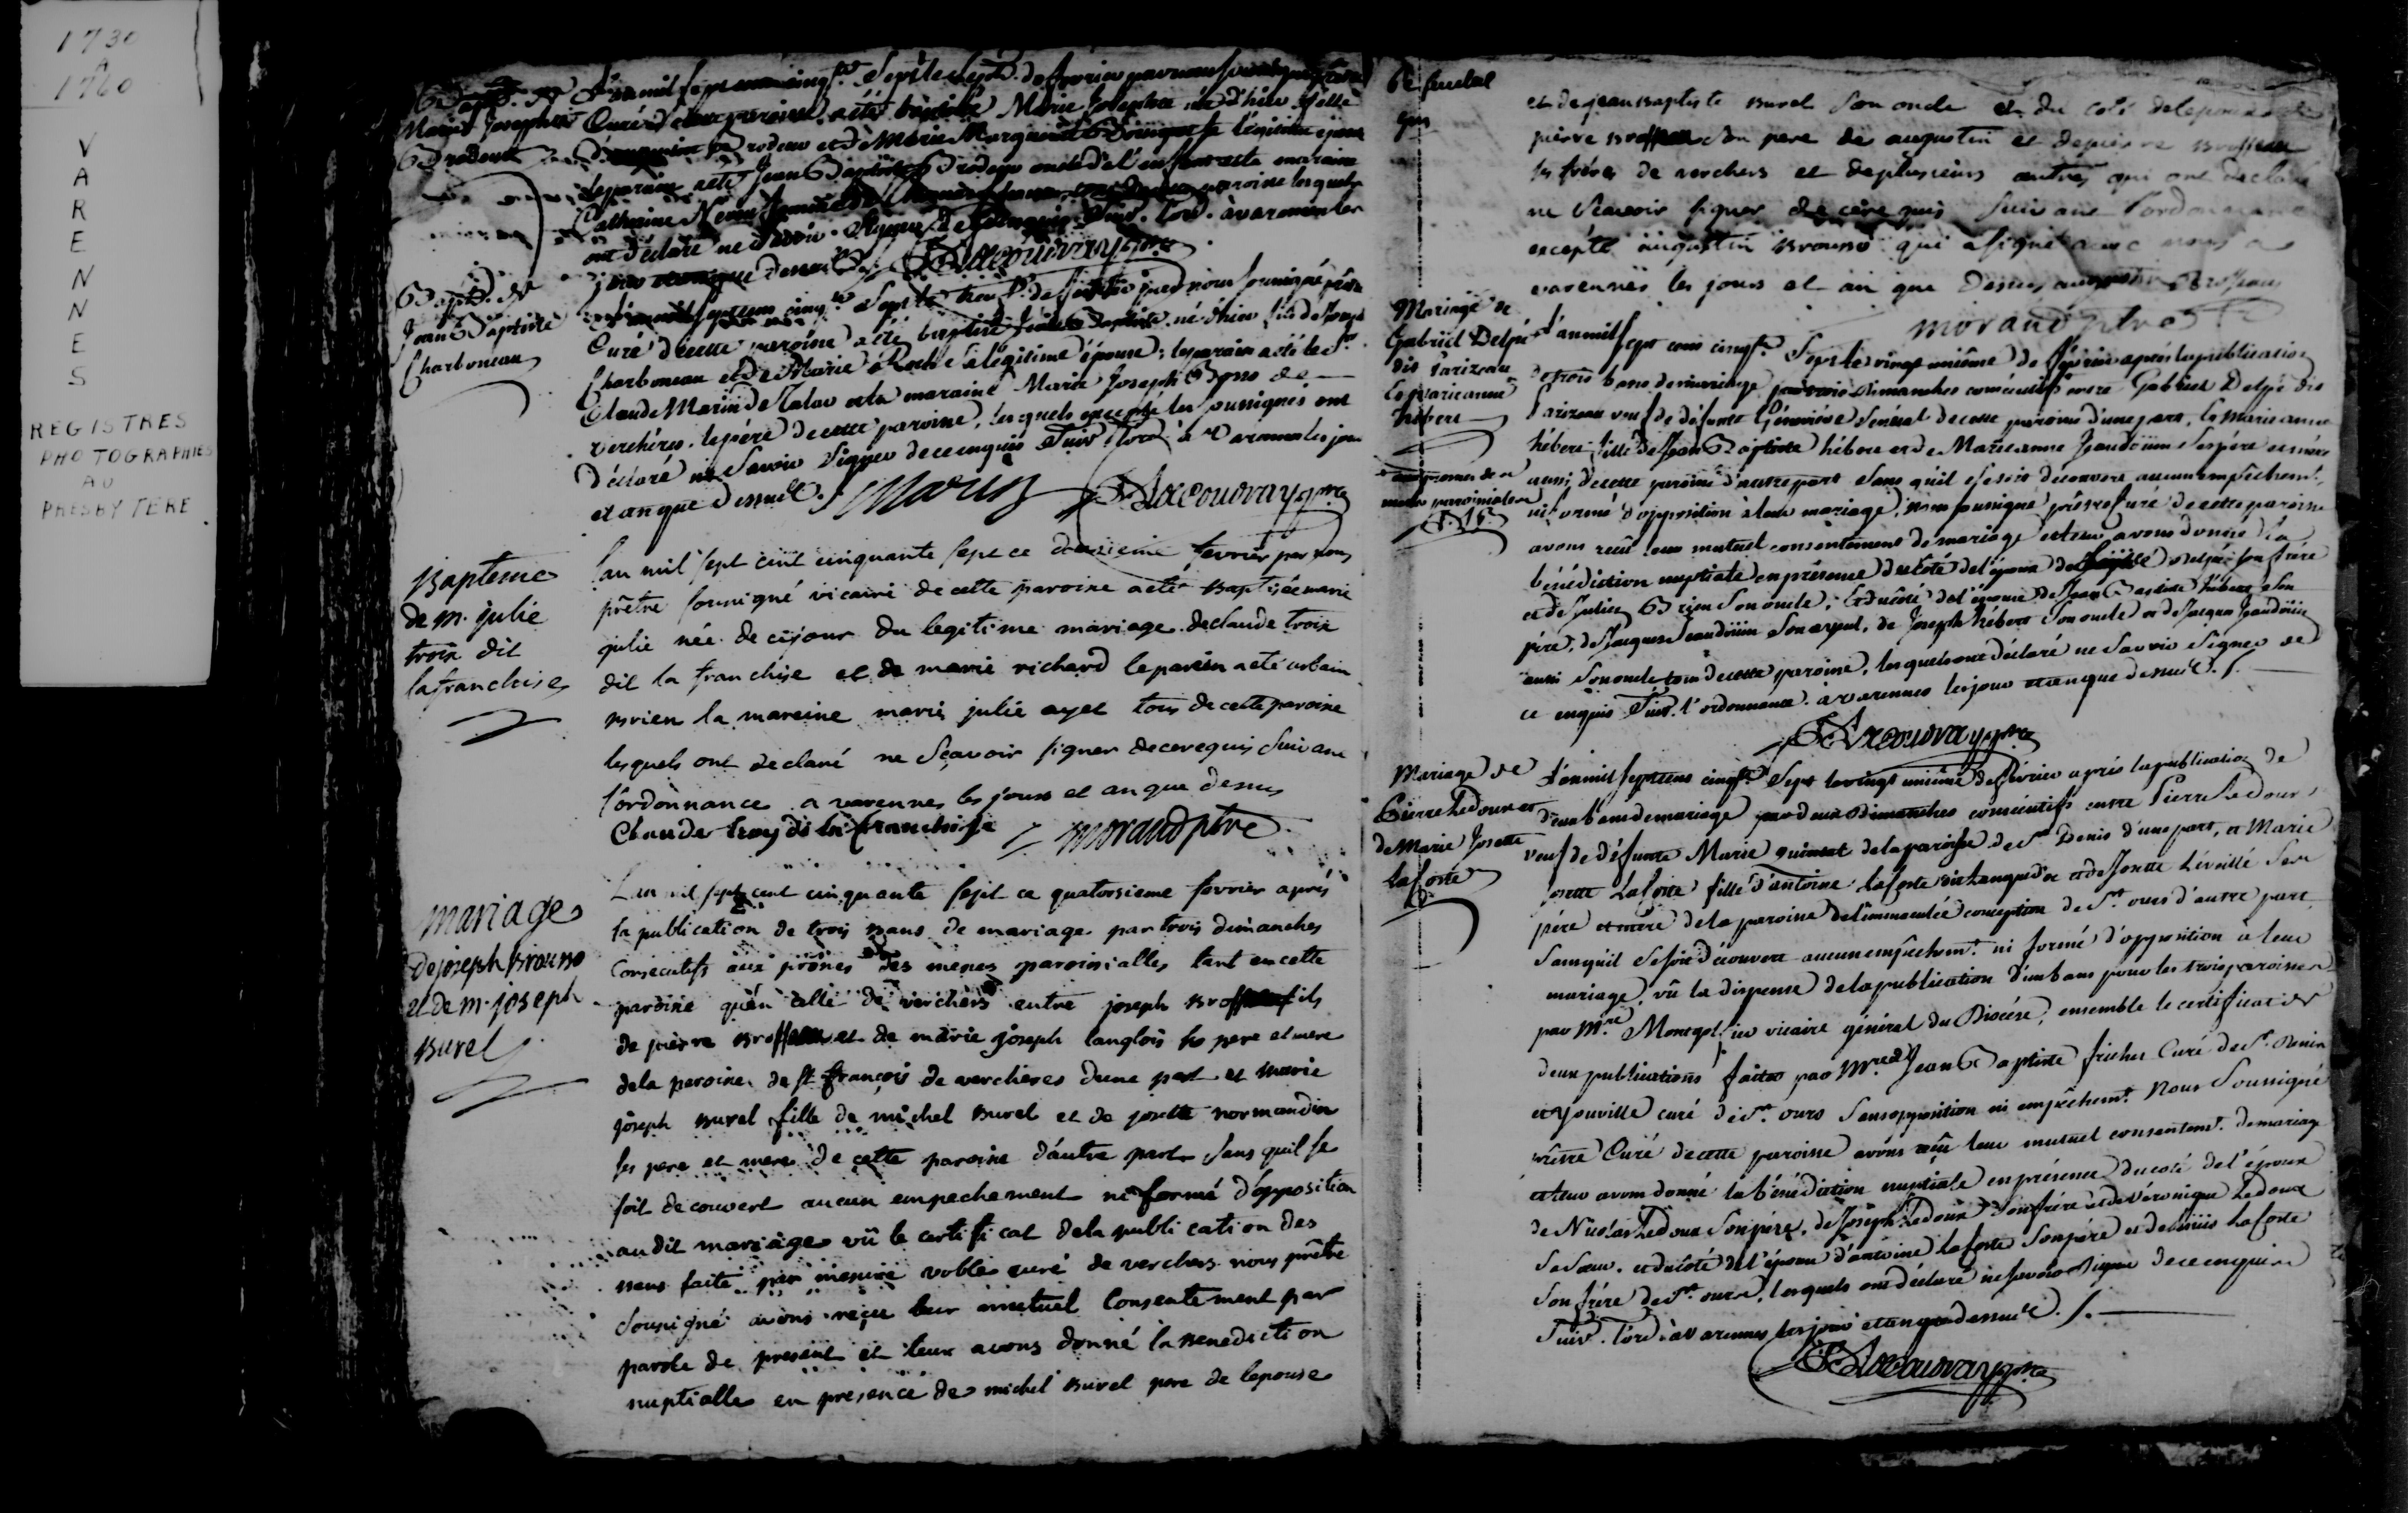 1730
A
1760
V
A
R
E
N
N
E
S
REGISTRES
PHOTOGRAPHIES
AU
PRESBYTERE
Bapt. de
Marie Josephte
Brodeur
L'an mil sept cinq.te Sept le de fevrier par nous
Curé de cette paroisse a été baptisée Marie Josephte née d'hier fille
Brodeur et de Marie Marguerite légitime épouse
le parain a été Jean Baptiste Brodeur oncle de l'enfant et la maraine
Catherine paroisse lesquels
ont déclaré ne Savoir Signer de ce enquis Suiv. l'ord. à varennes les
jour et an que dessus
Bapt. de
Jean Baptiste
Charboneau
sept cens cinq.te Sept le de fevrier par nous soussigné prêtre
Curé de cette paroisse a été baptisé Jean Baptiste né d'hier fils de Joseph
Charboneau et de Marie sa légitime épouse; le parain a été le S.r
Claude Marin de et la maraine Marie Joseph de
verchères. le père de cette paroisse, lesquels excepté les soussignés ont
déclaré ne Savoir Signer de ce enquis Suiv. l'ord. à Varennes les jour
et an que dessus. Marin
Bapteme
de m. julie
troix dit
lafranchise
Lan mil sept cent cinquante sept ce fevrier par nous
prêtre soussigné vicaire de cette paroisse a été Baptisée marie
julie née de ce jour du legitime mariage de claude troix
dit la franchise et de marie richard le parein a été urbain
Brien la mareine marie julie ayet tous de cette paroise
lesquels ont declaré ne sçavoir signer de ce requis suivant
l'ordonnance a varennes les jour et an que dessus
Claude troy dit la franchise morand ptre
mariage
de joseph Brousso
et de m. joseph
Burel
Lan mil sept cent cinquante sept ce quatorsieme fevrier aprés
la publication de trois Bans de mariage par trois dimanches
Consecutifs aux prônes des messes paroissialles tant en cette
paroisse qu'en celle de verchers entre joseph Brosseau fils
de pierre Brosseau et de marie joseph langlois ses pere et mere
de la paroise de st françois de verchères dune part et marie
joseph Burel fille de michel Burel et de josette normandin
ses pere et mere de cette paroise d'autre part sans quil se
soit decouvert aucun empechement ni formé d'opposition
au dit mariage vû le certificat de la publication des
Bans faite par messire curé de verchers nous prêtre
soussigné avons reçu leur mutuel Consentement par
parole de present et leur avons donné la Benediction
nuptialle en presence de michel Burel pere de lepouse
et de jean Baptiste Burel son oncle et du coté de lepoux de
pierre Brosseau son pere de augustin et de pierre Brosseau
ses frères de verchers et de plusieurs autres qui ont declaré
ne sçavoir signer de ce requis suivant l'ordonnance
excepté augustin Brousso qui a signé avec nous a
varennes les jours et an que dessus augustin Brosseau
morand ptre
Mariage de
Gabriel Delpé
dit Parizeau
et marieanne
hébert
L'an mil sept cens cinq.te Sept le vingt unième de fevrier après la publication
de trois bans de mariage par trois dimanches consécutifs entre Gabriel Delpé dit
Parizeau veuf de défunte Génevieve Senécal de cette paroisse d'une part, et marie anne
hébert fille de Jean Baptiste hébert et de Marieanne Jaudouin ses père et mère
aussi de cette paroisse d'autre part Sans qu'il se soit découvert aucun empêchem.t
ni formé d'opposition à leur mariage, nous soussigné prêtre curé de cette paroisse
avons reçû leur mutuel consentement de mariage et leur avons donné la
bénédiction nuptiale en présence du côté de l'époux de Delpé son frère
et de Julien Brien Son oncle; et du côté de l'épouse de Jean Baptiste hébert Son
père, de Jacques Jaudouin Son ayeul, de Joseph hébert Son oncle et de Jacques Jaudouin
aussi Son oncle tous de cette paroisse, lesquels ont déclaré ne Savoir Signer de
ce enquis Suiv. l'ordonnance. à varennes les jour et an que dessus.
Mariage de
Pierre Ledoux et
de Marie Josette
Laforte
L'an mil sept cens cinq.te Sept le vingt unième de février après la publication de
deux bans de mariage par deux dimanches consécutifs entre Pierre Ledoux
veuf de défunte Marie de la paroisse de S.t Denis d'une part, et Marie
josette Laforte fille d'antoine laforte et de Josette Léveillé Ses
père et mère de la paroisse de l'immaculée conception de S.t ours d'autre part
Sans qu'il se soit découvert aucun empêchem.t ni formé d'opposition à leur
mariage, vû la dispense de la publication d'un ban pour les trois paroisses
par M.re Montgolfier vicaire général du Diocèse, ensemble le certificat de
deux publications faites par M.re Jean Baptiste frichet Curé de S.t Denis
et youville curé de S.t ours Sans opposition ni empêchem.t Nous Soussigné
prêtre Curé de cette paroisse avons reçû leur mutuel consentem.t de mariage
et leur avons donné la bénédiction nuptiale en présence du coté de l'époux
de Nicolas Ledoux Son père, de Joseph Ledoux Son frère et de Véronique Ledoux
Sa Soeur. et du côté de l'épouse d'antoine laforte Son père et de laforte
Son frère de S.t ours, lesquels ont déclaré ne savoir Signer de ce enquis
Suiv. l'ord. à varennes les jour et an que dessus.